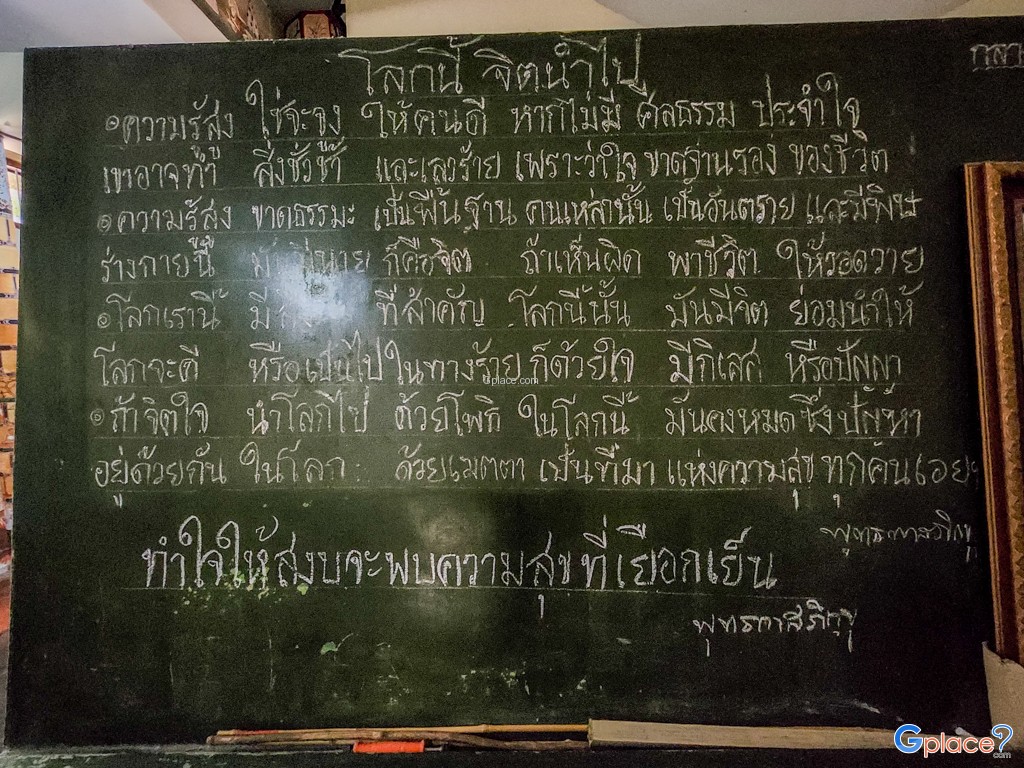 โลกนี้ จิตนำไป
กลา
๑ความรู้สูง ใช่จะจูง ให้คนดี หากไม่มี ศีลธรรม ประจำใจ
เขาอาจทำ สิ่งชั่วช้า และเลวร้าย เพราะว่าใจ ขาดฐานรอง ของชีวิต
๑ความรู้สูง ขาดธรรมะ เป็นพื้นฐาน คนเหล่านั้น เป็นอันตราย และมีพิษ
ร่างกายนี้ ก็คือจิต ถ้าเห็นผิด พาชีวิต ให้วอดวาย
๑โลกเรานี้ ที่สำคัญ โลกนี้นั้น มันมีจิต ย่อมนำให้
โลกจะดี หรือเป็นไป ในทางร้าย ก็ด้วยใจ มีกิเลศ หรือปัญญา
๑ถ้าจิตใจ นำโลกไป ด้วยโพธิ ในโลกนี้ มันคงหมดซึ่ง ปัญหา
อยู่ด้วยกัน ในโลก ด้วยเมตตา เป็นที่มา แห่งความสุข ทุกคนเอยฯ
พุทธทาสภิกขุ
ทำใจให้สงบจะพบความสุขที่เยือกเย็น
พุทธทาสภิกขุ
Gplace.com
Gplace?.com